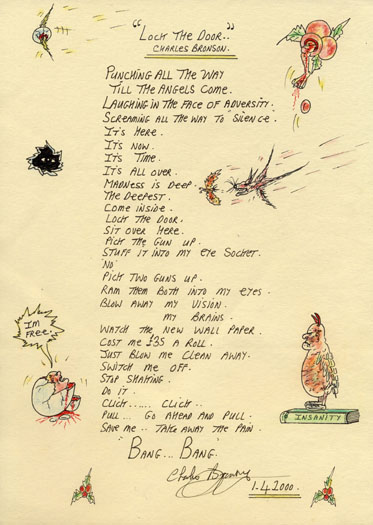 "Lock The Door.."
Charles Bronson.
Punching all the way
Till the angels come.
Laughing in the face of adversity.
Screaming all the way to 'silence'.
It's here.
It's now.
It's time.
It's all over.
Madness is deep.
The deepest.
Come inside.
Lock the door.
Sit over here.
Pick the gun up.
Stuff it into my eye socket.
'No'
Pick two guns up.
Ram them both into my eyes.
Blow away my vision.
my brains.
Watch the new wall paper.
Cost me £35 a roll.
Just blow me clean away.
Switch me off.
Stop shaking.
Do it.
Click...... Click..
Pull... Go ahead and pull.
Save me.. Take away the pain.
"Bang... Bang."
Charles Bronson
1.4.2000.
Im
Free.
INSANITY